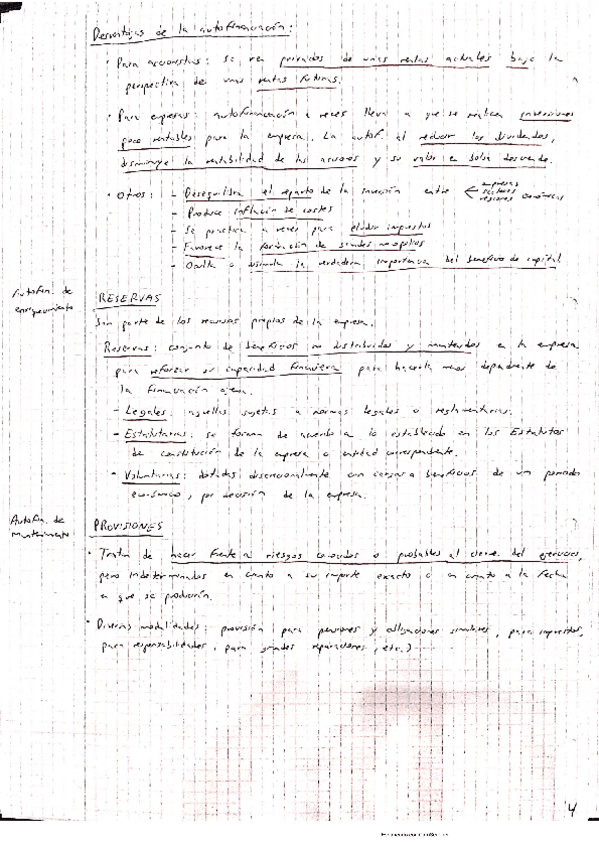 Desventajas de la autofinanciación:
· Para accionistas: se ven privados de unas rentas actuales bajo la
perspectiva de unas rentas futuras.
· Para empresas: autofinanciación a veces lleva a que se realicen inversiones
poco rentables para la empresa. La autof. al reducir los dividendos,
disminuye la rentabilidad de las acciones y su valor en bolsa desciende.
· Otros: - Desequilibra el reparto de la inversión entre empresas sectores regiones económicas
- Produce inflación de costes
- Se practica a veces para eludir impuestos
- Favorece la formación de grandes monopolios
- Oculta o disimula la verdadera importancia del beneficio de capital
Autofin. de
enriquecimiento
RESERVAS
Son parte de los recursos propios de la empresa.
Reservas: conjunto de beneficios no distribuidos y mantenidos en la empresa
para reforzar su capacidad financiera para hacerla menos dependiente de
la financiación ajena.
- Legales: aquellas sujetas a normas legales o reglamentarias.
- Estatutarias: se forman de acuerdo a lo establecido en los Estatutos
de constitución de la empresa o entidad correspondiente.
- Voluntarias: dotadas discrecionalmente con cargo a beneficios de un periodo
económico, por decisión de la empresa.
Autofin. de
mantenimiento
PROVISIONES
· Tratan de hacer frente a riesgos conocidos o probables al cierre del ejercicio,
pero indeterminados en cuanto a su importe exacto o en cuanto a la fecha
en que se producirán.
· Diversas modalidades: provisión para pensiones y obligaciones similares, para impuestos,
para responsabilidades, para grandes reparaciones, etc.)
4